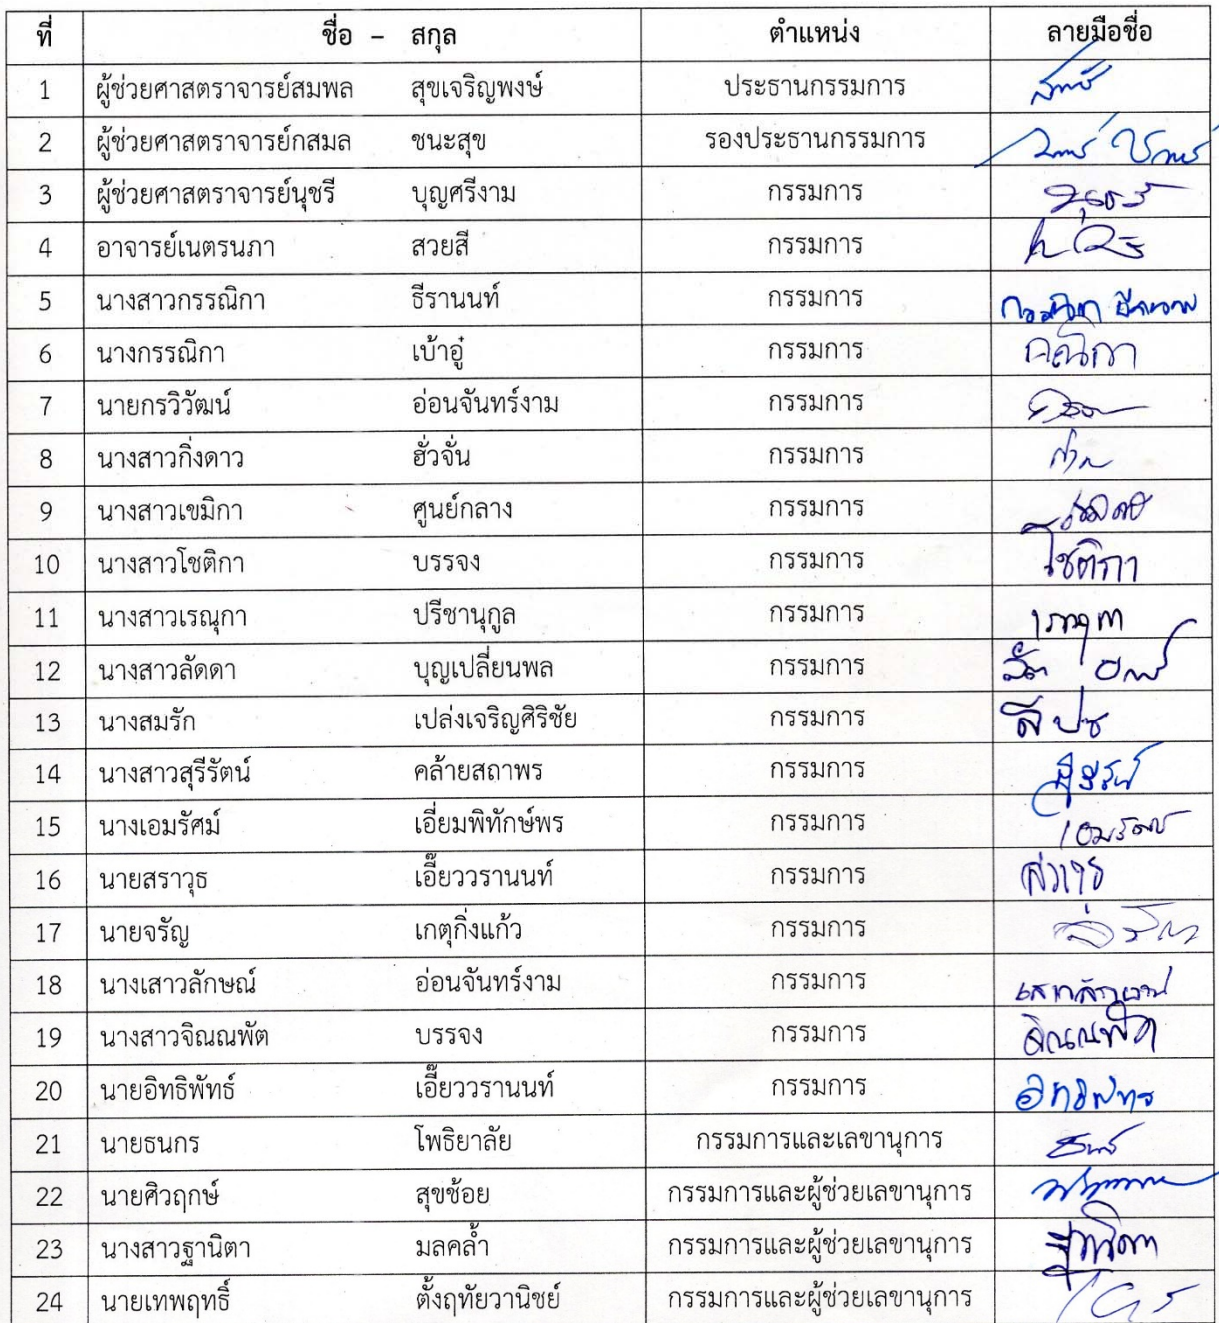 ที่ ชื่อ – สกุล ตำแหน่ง ลายมือชื่อ
1 ผู้ช่วยศาสตราจารย์สมพล สุขเจริญพงษ์ ประธานกรรมการ
2 ผู้ช่วยศาสตราจารย์กสมล ชนะสุข รองประธานกรรมการ
3 ผู้ช่วยศาสตราจารย์นุชรี บุญศรีงาม กรรมการ
4 อาจารย์เนตรนภา สวยสี กรรมการ
5 นางสาวกรรณิกา ธีรานนท์ กรรมการ
6 นางกรรณิกา เบ้าอู๋ กรรมการ
7 นายกรวิวัฒน์ อ่อนจันทร์งาม กรรมการ
8 นางสาวกิ่งดาว ฮั่วจั่น กรรมการ
9 นางสาวเขมิกา ศูนย์กลาง กรรมการ
10 นางสาวโชติกา บรรจง กรรมการ โชติกา
11 นางสาวเรณุกา ปรีชานุกูล กรรมการ
12 นางสาวลัดดา บุญเปลี่ยนพล กรรมการ
13 นางสมรัก เปล่งเจริญศิริชัย กรรมการ
14 นางสาวสุรีรัตน์ คล้ายสถาพร กรรมการ
15 นางเอมรัศม์ เอี่ยมพิทักษ์พร กรรมการ
16 นายสราวุธ เอี๊ยววรานนท์ กรรมการ
17 นายจรัญ เกตุกิ่งแก้ว กรรมการ
18 นางเสาวลักษณ์ อ่อนจันทร์งาม กรรมการ
19 นางสาวจิณณพัต บรรจง กรรมการ
20 นายอิทธิพัทธ์ เอี๊ยววรานนท์ กรรมการ
21 นายธนกร โพธิยาลัย กรรมการและเลขานุการ
22 นายศิวฤกษ์ สุขช้อย กรรมการและผู้ช่วยเลขานุการ
23 นางสาวฐานิตา มลคล้ำ กรรมการและผู้ช่วยเลขานุการ
24 นายเทพฤทธิ์ ตั้งฤทัยวานิชย์ กรรมการและผู้ช่วยเลขานุการ